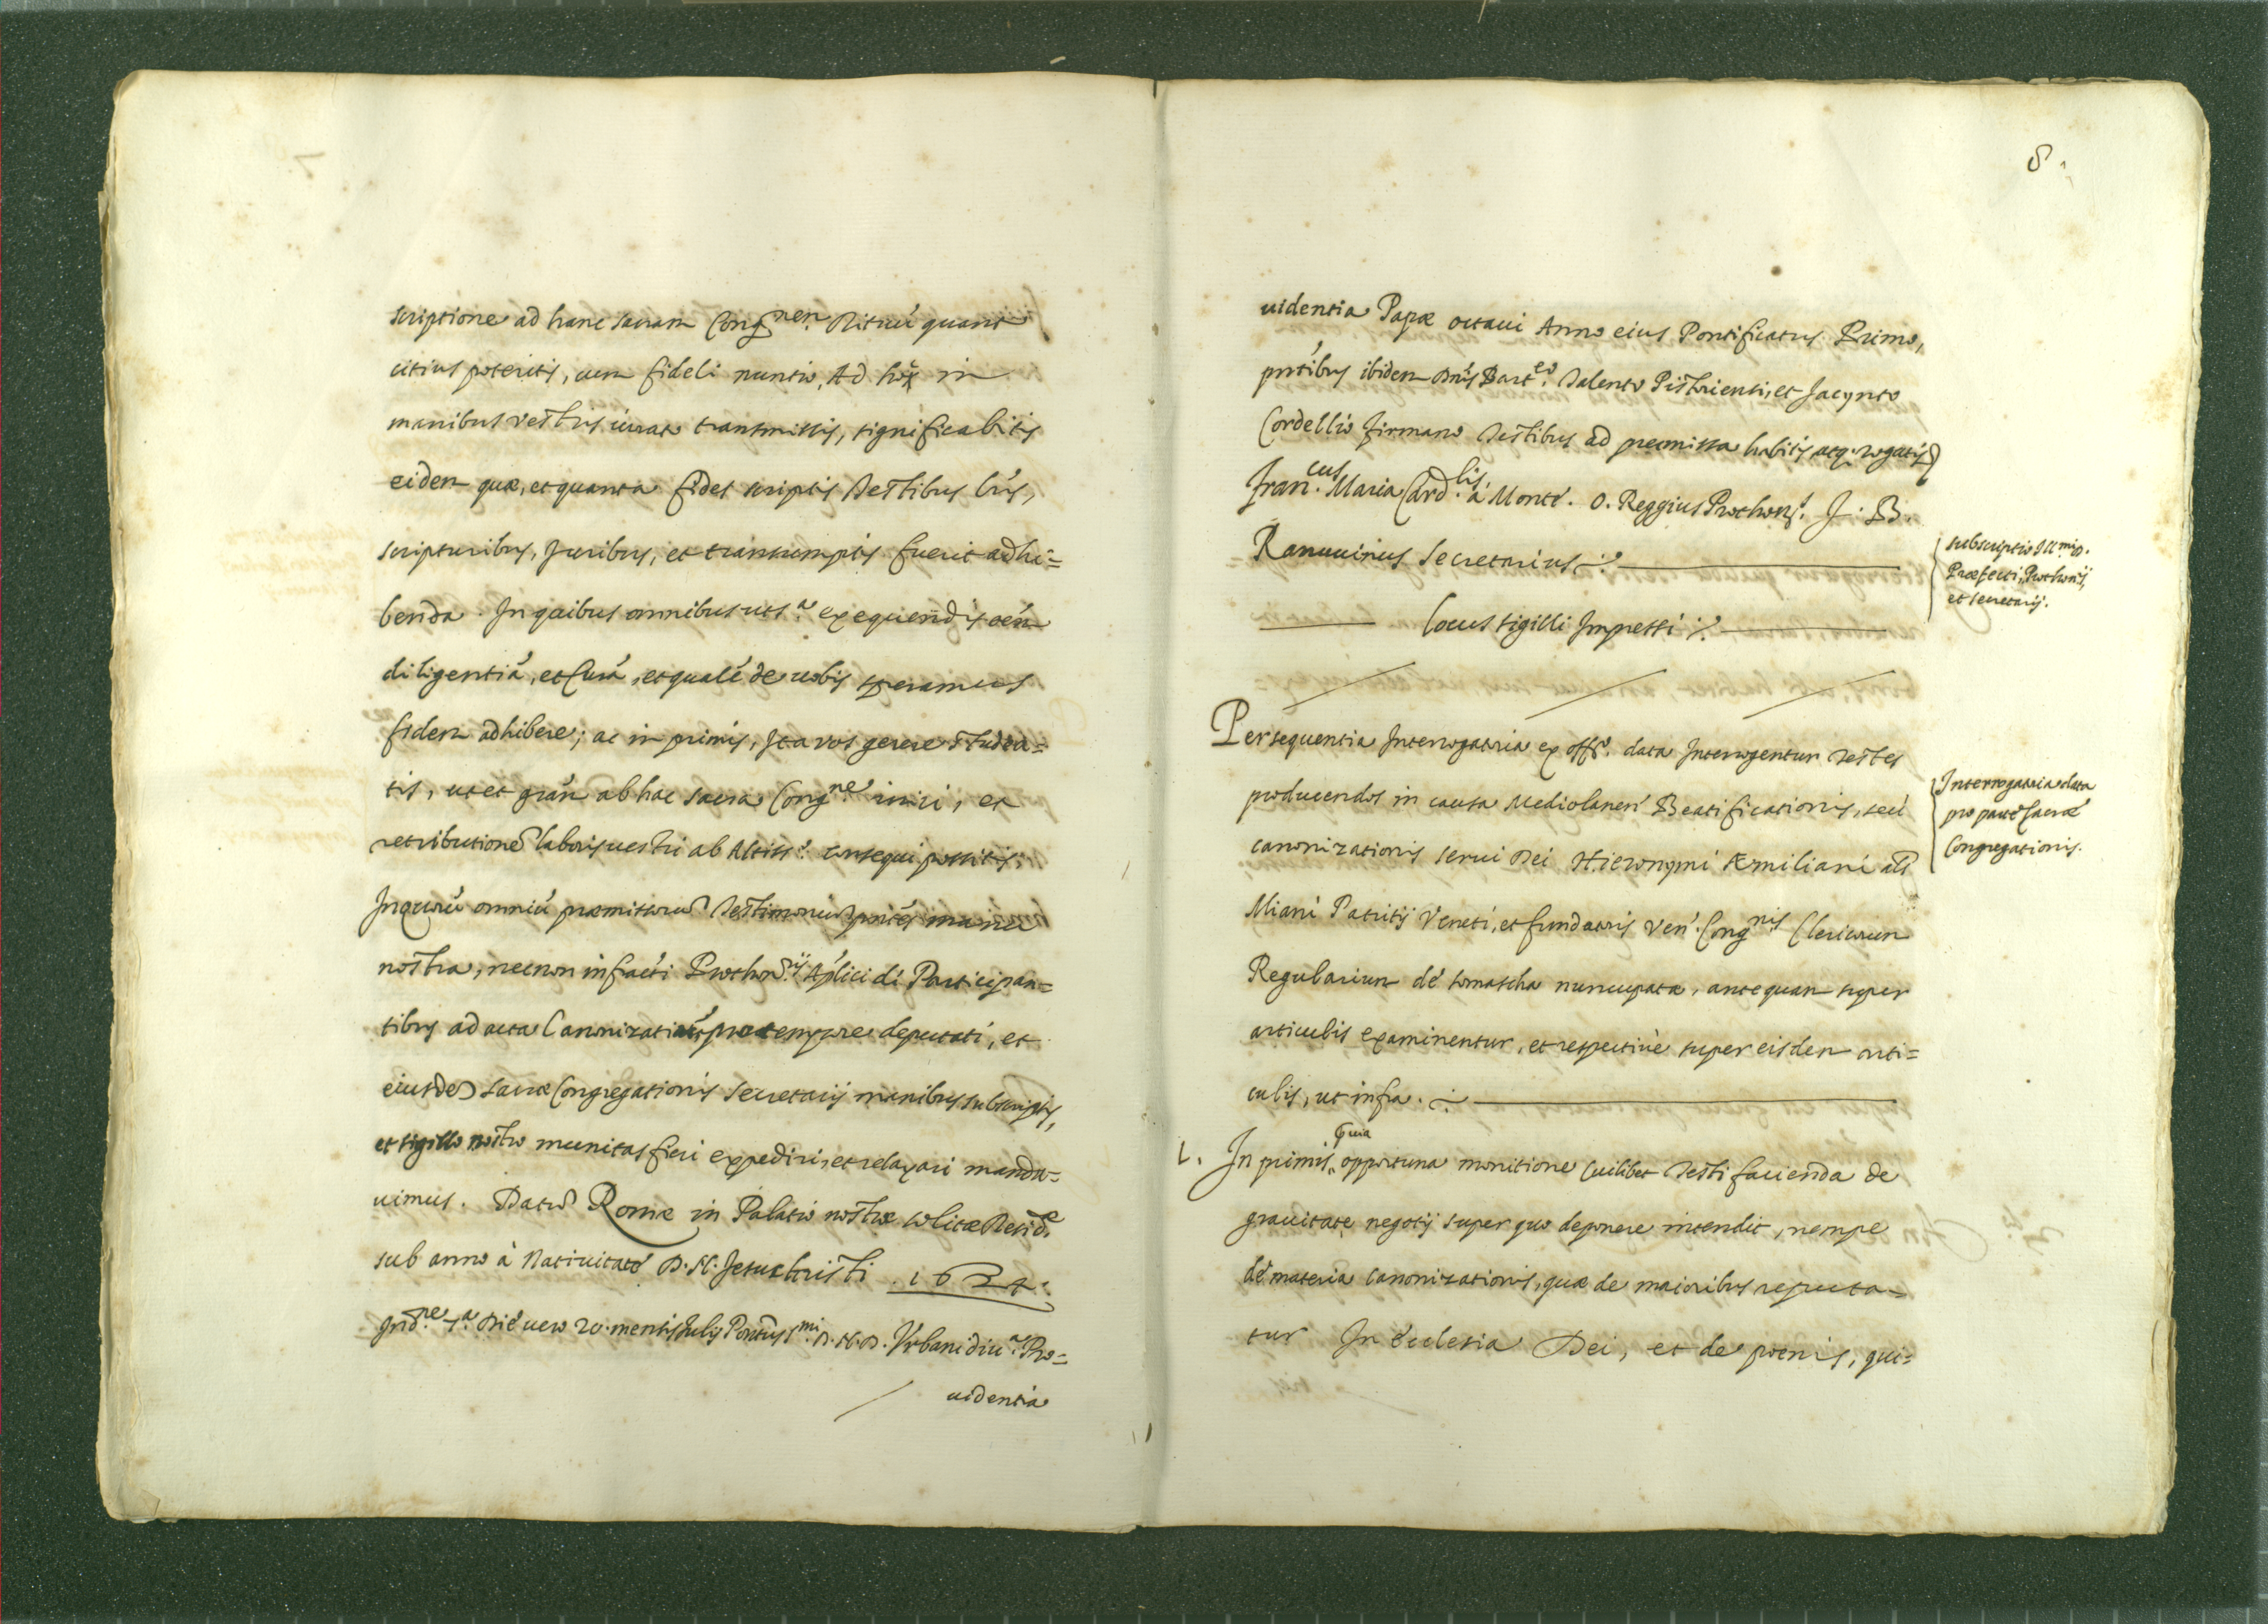 scriptione ad hanc sacram Cong.nem Rituu' quant
citius poteritis, cum fideli nuntio, Ad hoc in
manibus vestris iurato transmissis, significabitis
eidem quæ, et quanta fides scriptis Testibus l'ris,
scripturibus, Juribus, et transumptis fuerit adhi=
benda. In quibus omnibus uts.a exequendis oe'm
diligentiā, et Curā, et qualē de uobis speramus
fidem adhibere; ac in primis, Ita vos gerere studea=
tis, ut et gra'm ab hac sacra Cong.ne iniri, et
retributionē laboris uestri ab Altiss.o consequi possitis.
In quorū omniū præmissorū Testimoniū pn'tes manu
nostra, necnon infra'cti Prothon.ij Ap'lici di Participan=
tibus ad acta Canonizatiōīs pro tempore deputati, et
eiusdē sacræ Congregationis Secretarij manibus subscriptis,
et sigillo nostro munitas fieri expediri, et relaxari manda=
uimus. Datū Romæ in Palatio nostræ solitæ Resid.æ
sub anno à Natiuitate D. N. Jesu Christi 1624.
Ind.ne 7.a Die uero 20. mensis Julij Pontūs S.mi D. N. D. Vrbani diu.a Pro=
uidentia
8.
uidentia Papæ octaui Anno eius Pontificatus Primo,
pn'tibus ibidem Dn'is Bart.eo Talento Pistoriensi, et Jacynto
Cordellio Firmano Testibus ad præmissa habitis atq. rogatis
Fran.cus Maria Card.lis à Monte. O. Reggius Prothon.s J. B.
Ranuuinus Secretarius
subscriptio Ill.mi D.
Præfecti, Prothonij,
et secretarij.
Locus sigilli Impressi
Per sequentia Interrogatoria ex off.o data Interrogentur Testes
producendos in causa Mediolanen' Beatificationis, seù
canonizationis serui Dei Hieronymi Æmiliani als
Miani Patritij Veneti, et fundatoris Ven. Cong.nis Clericorum
Regularium de somascha nuncupatæ, antequam super
articulis examinentur, et respectiuè super eisdem arti=
culis, ut infra.
Interrogatoria data
pro parte sacræ
Congregationis.
1. In primis Quia opportuna monitione Cuilibet Testi facienda de
grauitate negotij super quo deponere intendit, nempe
de materia canonizationis, quæ de maioribus reputa=
tur In Ecclesia Dei, et de poenis, qui=